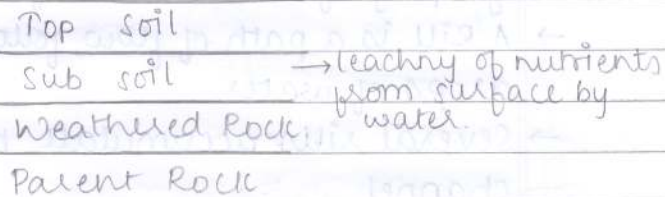 Top soil
Sub soil → leachny of nutrients
from surface by
Weathered Rock water.
Parent Rock